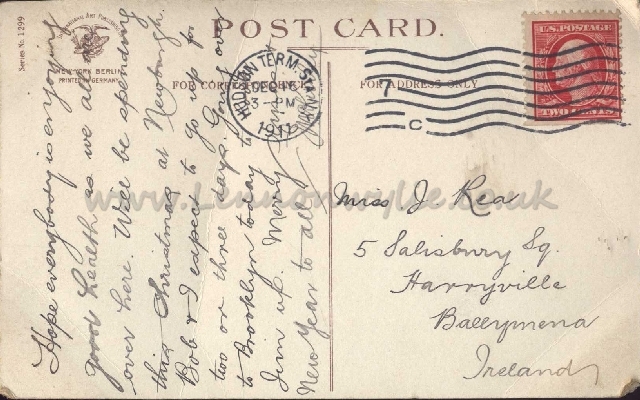 Series No. 1299
NEW-YORK BERLIN
PRINTED IN GERMANY
POST CARD.
FOR ADDRESS ONLY
HUDSON TERM. STA.
DEC 16
3 - PM
1911
N.Y.
7
C
U.S. POSTAGE
TWO CENTS
Hope everybody is enjoying
good health as we all are
over here. Will be spending
this Christmas at Newburgh.
Bob & I expect to go up for
two or three days. Going over
to Brooklyn today to
Jim up. Merry
New Year to all
Miss J Rea
5 Salisbury Sq.
Harryville
Ballymena
Ireland
www.Lennonwylie.co.uk